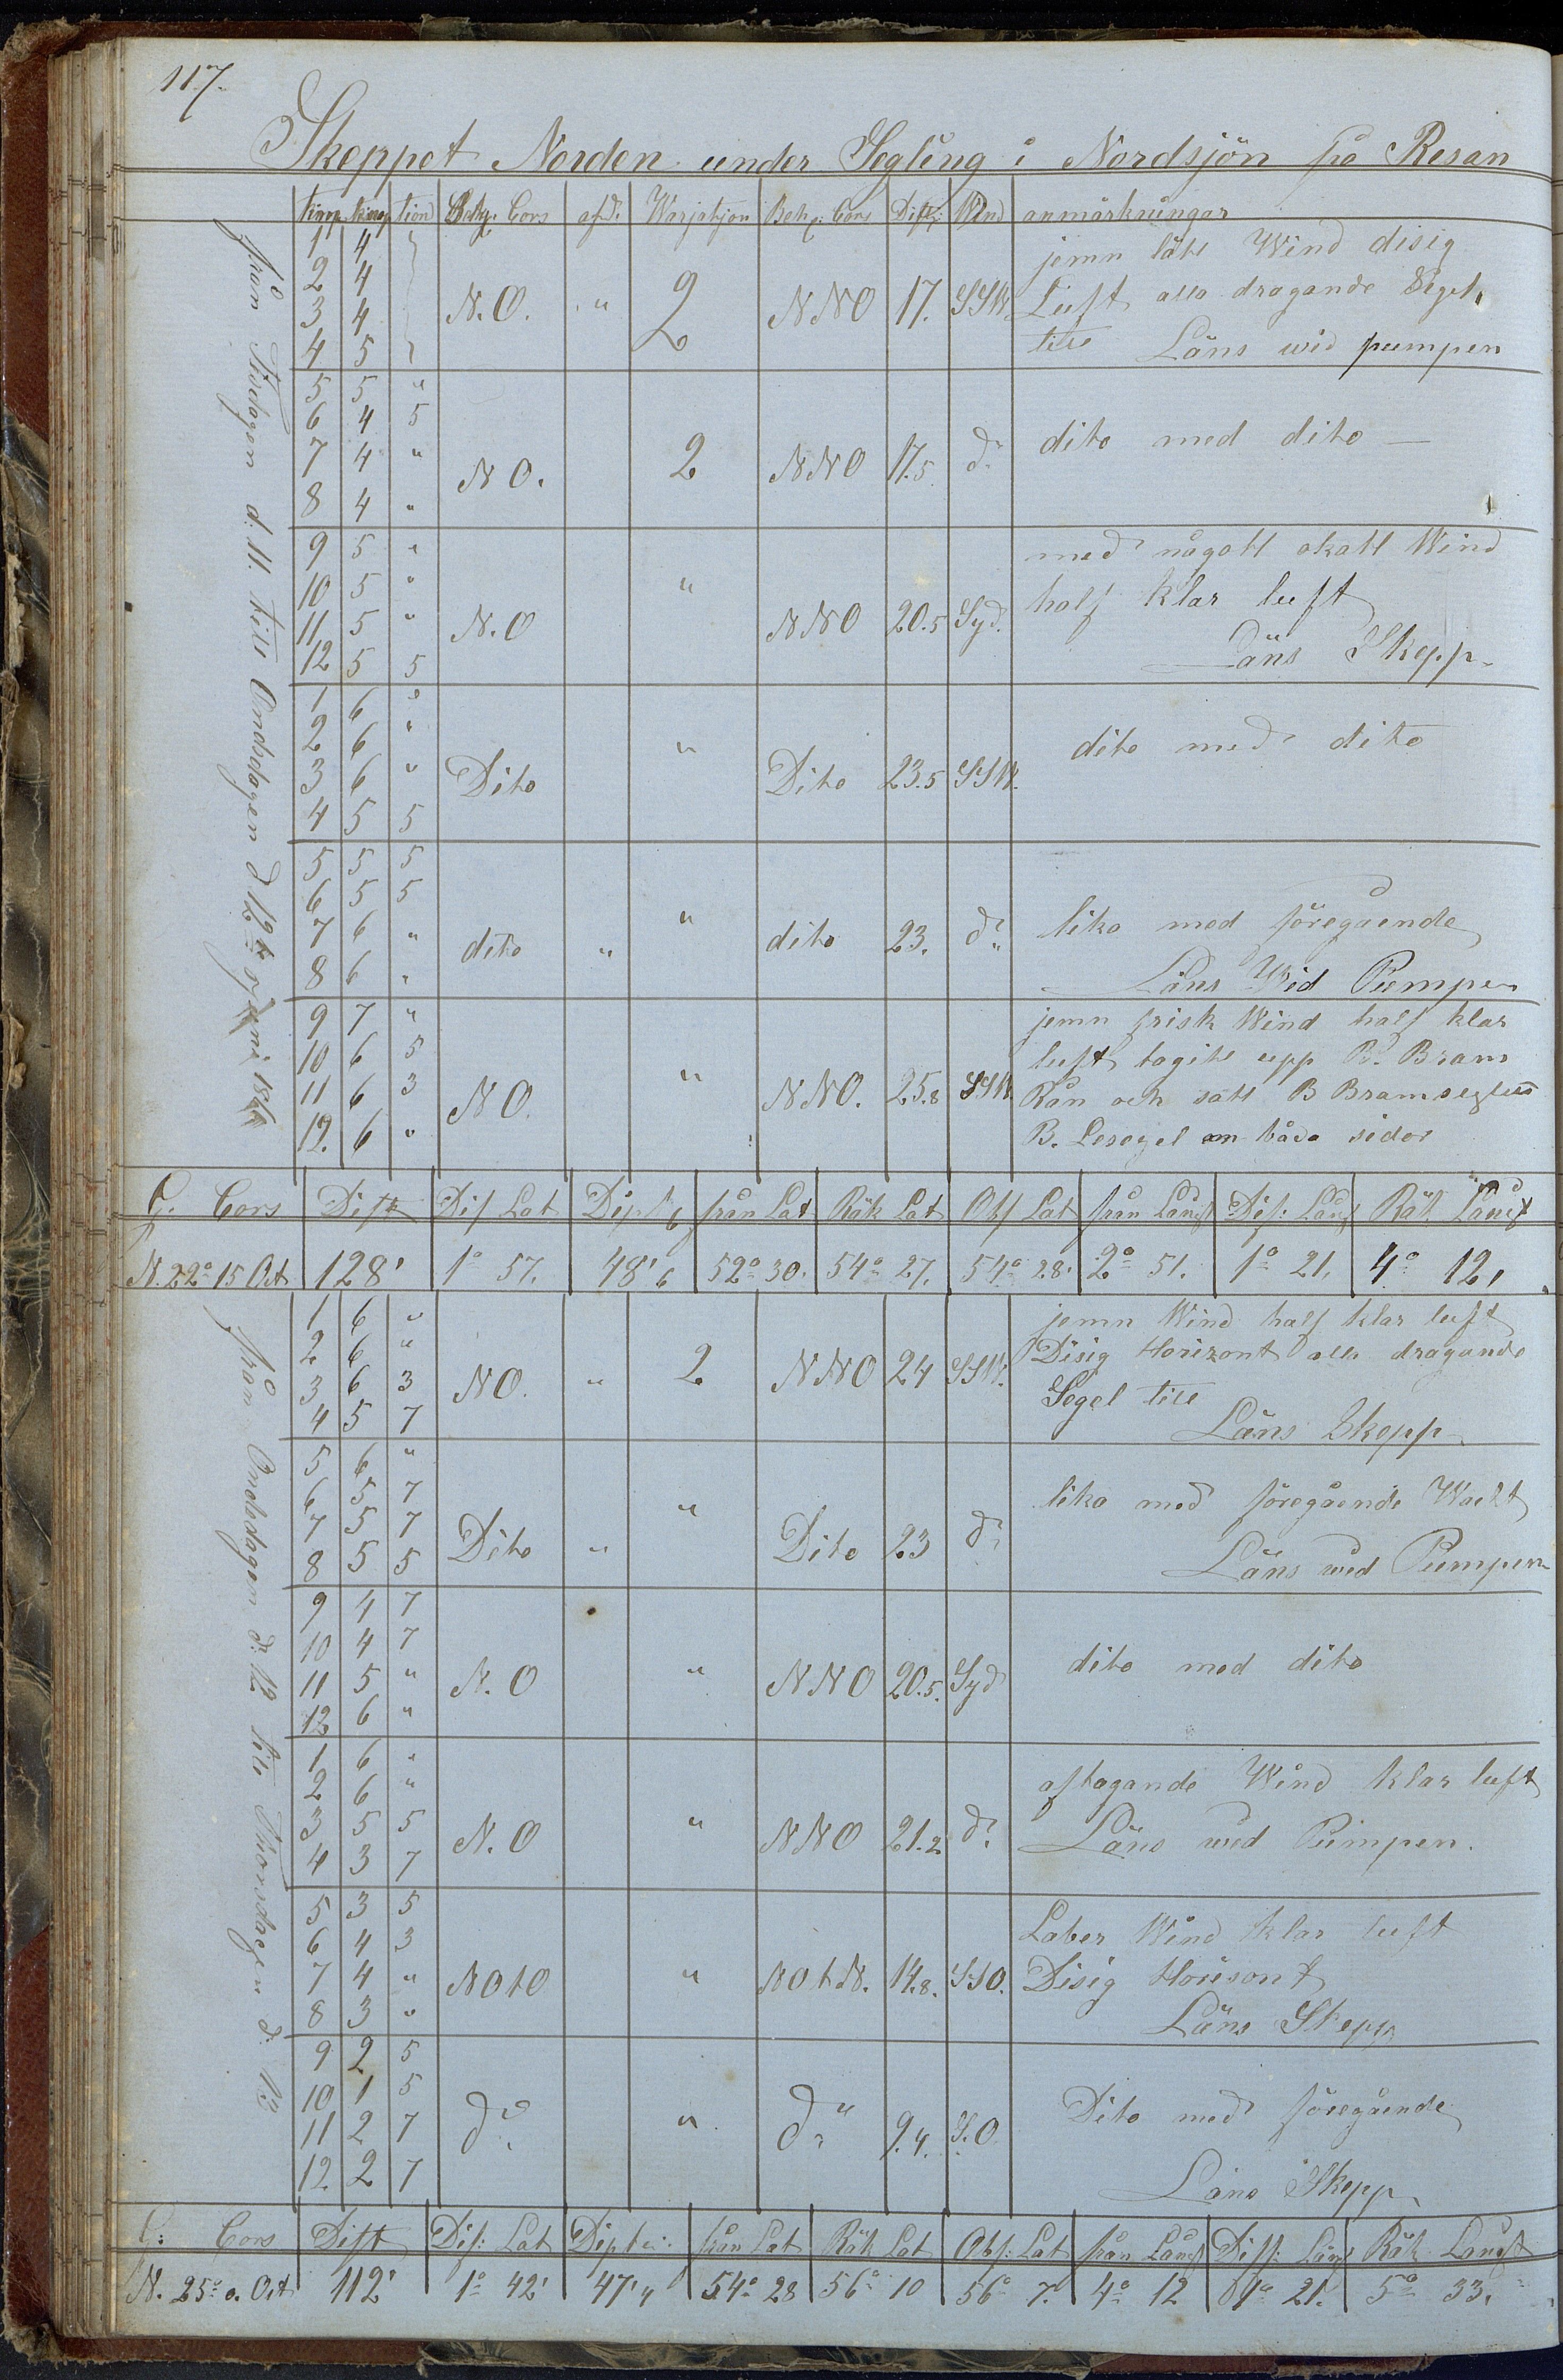 117.
Skeppet Norden under Segling i Nordsjön på Resan
afd. Warjatjon Beh. Cors Dist: Wind anmärkningar
från Tisdagen d. 11. till Onsdagen d 12
1 4
2 4
3 4
4 5
N.O. " 2 NNO 17. SSW.
jemn lätt Wind disig
Luft alla dragande Segel
till Läns wid pumpen
5 5 "
6 4 5
7 4 "
8 4 "
NO. 2 NNO 17.5 do
dito med dito —
9 5 "
10 5 "
11 5 "
12 5 5
N.O " NNO 20.5 Syd.
med något ökatt Wind
half klar luft
Läns Skepp
1 6 "
2 6 "
3 6 "
4 5 5
Dito " Dito 23.5 SSW.
dito med dito
5 5 5
6 5 5
7 6 "
8 6 "
dito " " dito 23. do
lika med föregående
Läns Wid Pumpen
9 7 "
10 6 5
11 6 3
12. 6 "
NO. " NNO. 25.8 SSW
jemn frisk Wind half klar
luft tagitt upp B. Bram
Rån och satt B Bramseglen
B. Lesegel om båda sidor
G. Cors Dist Dif Lat från Lat Räk Lat Obs Lat från Långd Dif: Lång Räk Långd
N. 22° 15 Ost 128' 1° 57. 48' 6 52° 30. 54° 27. 54° 28. 2° 51. 1° 21. 4° 12,
från Onsdagen d: 12 till Thorsdagen d: 13
1 6 "
2 6 "
3 6 3
4 5 7
NO. " 2 NNO 24 SSW.
jemn Wind half klar luft
Disig Horizont alla dragande
Segel till
Läns Skepp
5 6 "
6 5 7
7 5 7
8 5 5
Dito " " Dito 23 do
lika med föregående Wackt
Läns wid Pumpen
9 4 7
10 4 7
11 5 "
12 6 "
N.O " NNO 20.5. Syd
dito med dito
1 6 "
2 6 "
3 5 5
4 3 7
N.O " NNO 21.2 do
aftagande Wind klar luft
Läns wid Pumpen.
5 3 5
6 4 3
7 4 "
8 3 "
NOtO " NOtN. 14.8. SSO.
Laber Wind klar luft
Disig Horisont
Läns Skepp
9 2 5
10 1 5
11 2 7
12 2 7
do " do 9.4. S.O
Dito med föregående
Läns Skepp
G: Cors Dist Dif: Lat från Lat Räk Lat Obs: Lat från Långd Diff: Lång Räk Långd
N. 25° 0. Ost 112' 1° 42' 47'4 54° 28 56° 10 56° 7. 4° 12 1° 21. 5° 33.